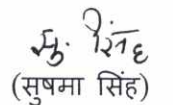 सु. सिंह
(सुषमा सिंह)